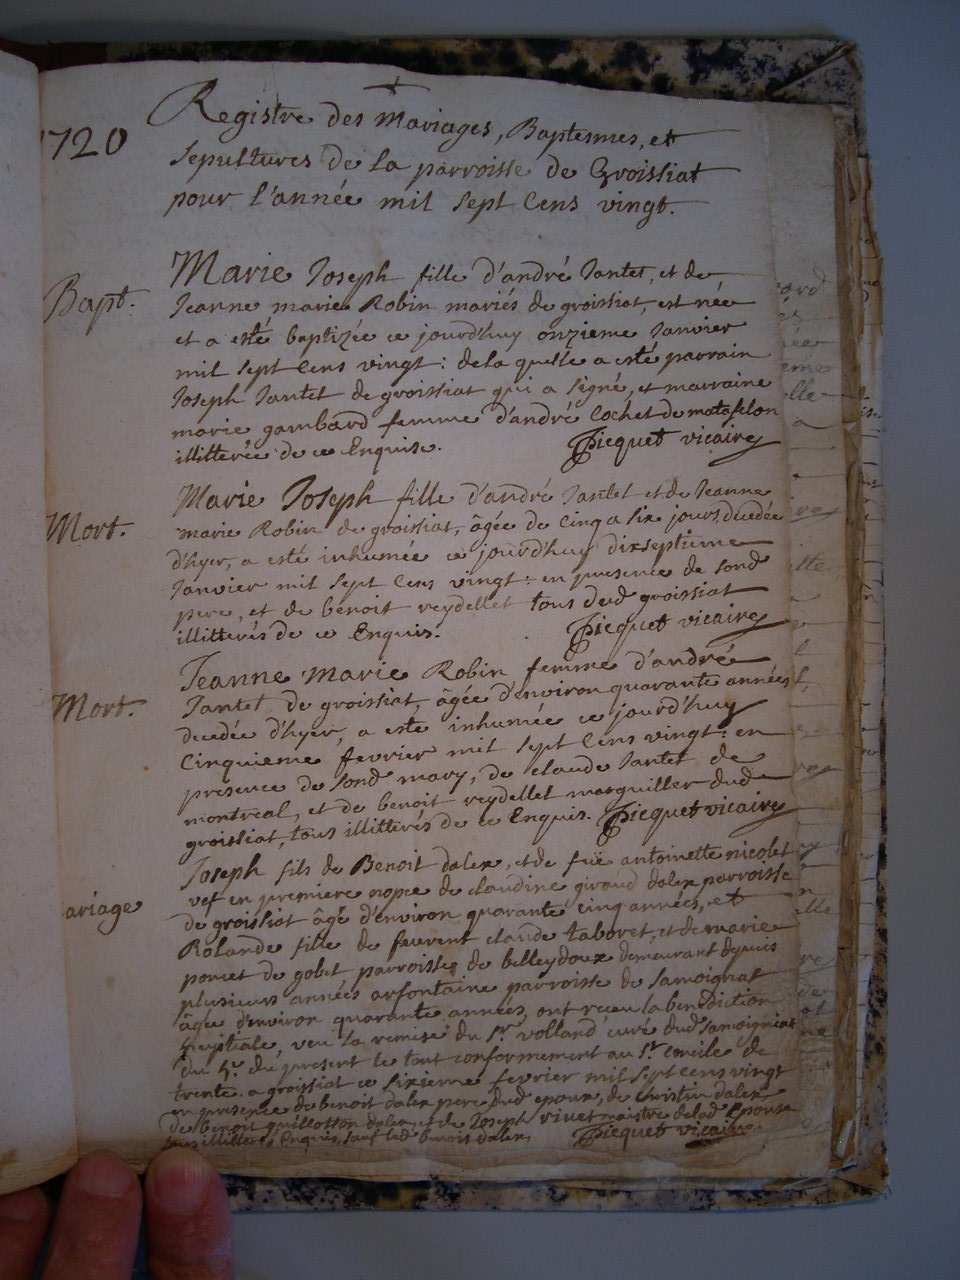 1720
Registre des Mariages, Baptesmes, et
sepultures de la parroisse de Groissiat
pour l'année mil sept Cens vingt.
Bapt.
Marie Joseph fille d'andré Jantet, et de
Jeanne marie Robin mariés de groissiat, est née
et a esté baptizée ce jourd'huy onzieme Janvier
mil sept Cens vingt : de la quelle a esté parrain
Joseph Jantet de groissiat qui a signé, et marraine
marie gambard femme d'andré Cochet de matafelon
illitterée de ce Enquise. Picquet vicaire
Mort.
Marie Joseph fille d'andré Jantet et de Jeanne
marie Robin de groissiat, âgée de Cinq a six jours, decedée
d'hyer, a esté inhumée ce jourd'huy dixseptieme
Janvier mil sept Cens vingt : en presence de sond
pere, et de benoit reydellet tous dud groissiat
illitterés de ce Enquis. Picquet vicaire
Mort.
Jeanne Marie Robin femme d'andré
Jantet de groissiat, âgée d'environ quarante années
decedée d'hyer, a esté inhumée ce jourd'huy
Cinquieme fevrier mil sept Cens vingt : en
presence de sond mary, de claude Jantet de
montreal, et de benoit reydellet marguiller dud
groissiat, tous illitterés de ce Enquis. Picquet vicaire
ariage
Joseph fils de Benoit dalex, et de füe antoinette nicolet
vef en premiere nopce de claudine giroud dalex parroisse
de groissiat âgé d'environ quarante cinq années, et
Rolande fille de claude taboret, et de marie
poncet de gobet parroisse de belleydoux demeurant depuis
plusieurs années arfontaine parroisse de Samoignat
âgée d'environ quarante années, ont receu la benediction
nuptiale, veu la remise du Sr. volland curé dud samoigniat
du present le tout conformement au St. concile de
trente. a groissiat ce sixieme fevrier mil sept Cens vingt
en presence de benoit dalex pere dud epoux, de christin dalex,
de benoit guillotton dalex, et de Joseph vivet maistre de lad Epouse
tous illitterés Enquis, sauf led benoit dalex. Picquet vicaire